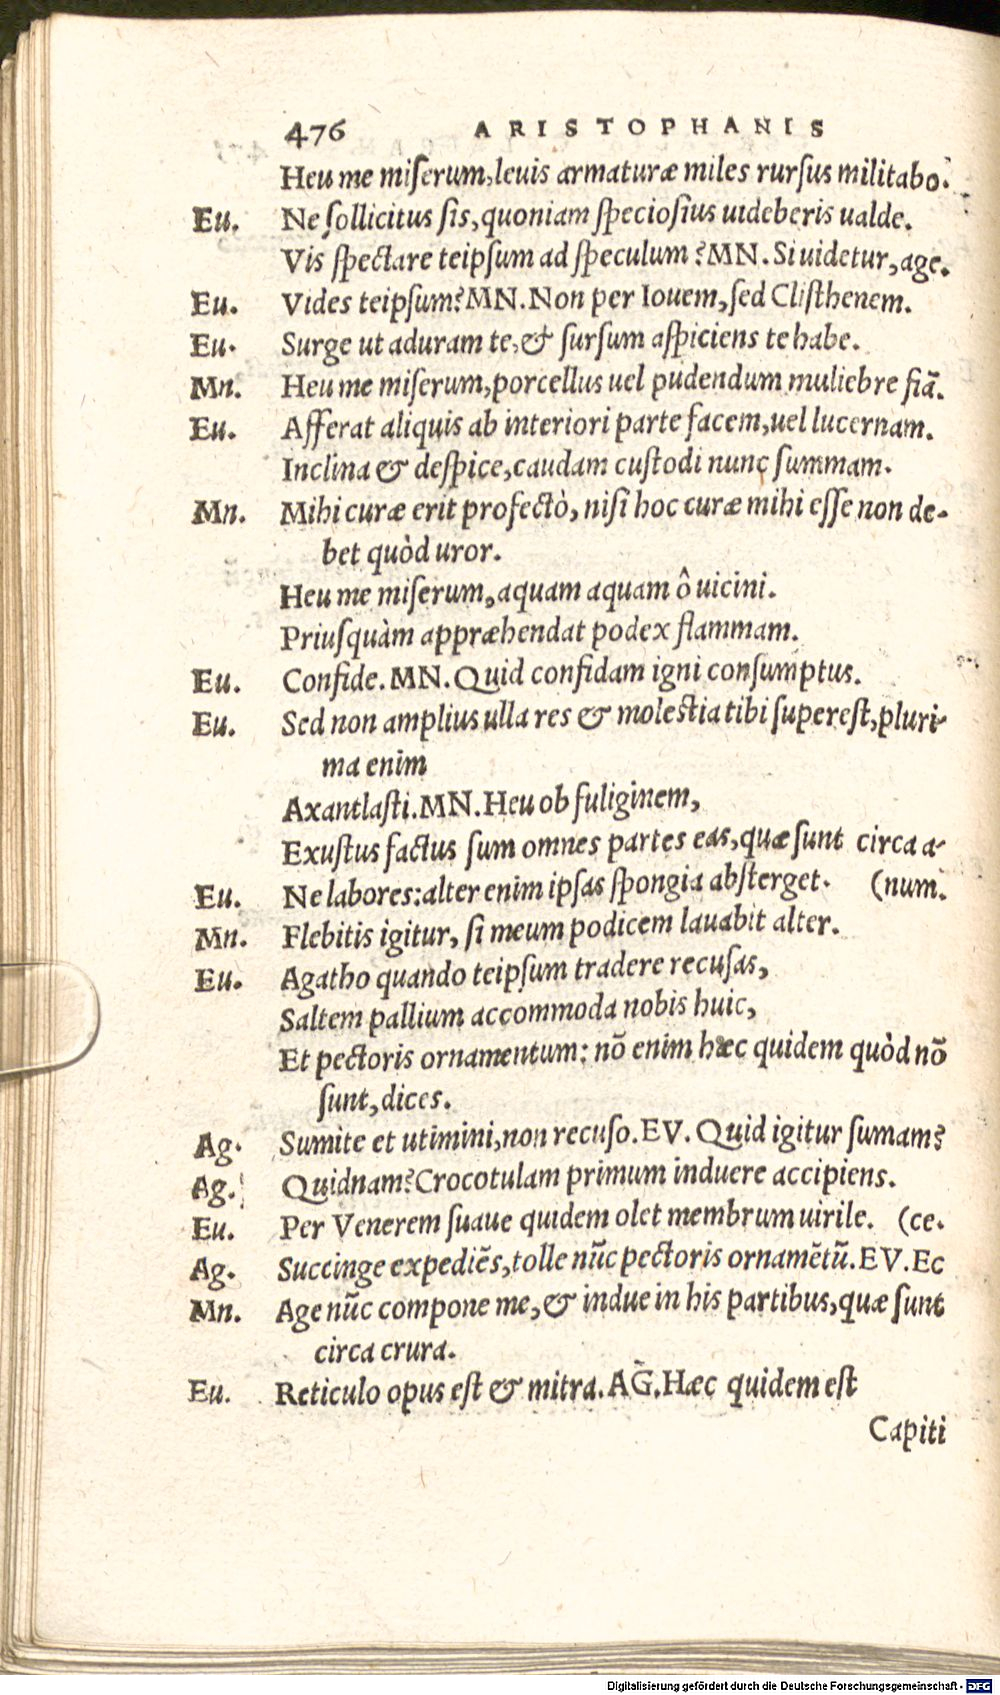 476 ARISTOPHANIS
Heu me miserum, leuis armaturæ miles rursus militabo.
Eu. Ne sollicitus sis, quoniam speciosius uideberis ualde.
Vis spectare teipsum ad speculum? MN. Si uidetur, age.
Eu. Vides teipsum? MN. Non per Iouem, sed Clisthenem.
Eu. Surge ut aduram te, & sursum aspiciens te habe.
Mn. Heu me miserum, porcellus uel pudendum muliebre fiā.
Eu. Afferat aliquis ab interiori parte facem, uel lucernam.
Inclina & despice, caudam custodi nunc summam.
Mn. Mihi curæ erit profectò, nisi hoc curæ mihi esse non de-
bet quòd uror.
Heu me miserum, aquam aquam ô uicini.
Priusquàm appræhendat podex flammam.
Eu. Confide. MN. Quid confidam igni consumptus.
Eu. Sed non amplius ulla res & molestia tibi superest, pluri-
ma enim
Axantlasti. MN. Heu ob fuliginem,
Exustus factus sum omnes partes eas, quæ sunt circa a-
Eu. Ne labores: alter enim ipsas spongia absterget. (num.
Mn. Flebitis igitur, si meum podicem lauabit alter.
Eu. Agatho quando teipsum tradere recusas,
Saltem pallium accommoda nobis huic,
Et pectoris ornamentum: nō enim hæc quidem quòd nō
sunt, dices.
Ag. Sumite et utimini, non recuso. EV. Quid igitur sumam?
Ag. Quidnam? Crocotulam primum induere accipiens.
Eu. Per Venerem suaue quidem olet membrum uirile. (ce.
Ag. Succinge expediēs, tolle nūc pectoris ornamētū. EV. Ec
Mn. Age nūc compone me, & indue in his partibus, quæ sunt
circa crura.
Eu. Reticulo opus est & mitra. AG. Hæc quidem est
Capiti
Digitalisierung gefördert durch die Deutsche Forschungsgemeinschaft - DFG